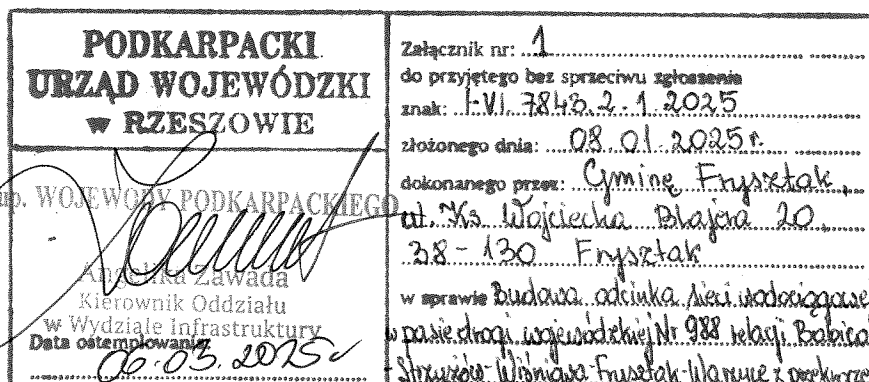 PODKARPACKI
URZĄD WOJEWÓDZKI
w RZESZOWIE
up. WOJEWODY PODKARPACKIEGO
Angelika Zawada
Kierownik Oddziału
w Wydziale Infrastruktury
Data ostemplowania
06.03.2025r
Załącznik nr: 1
do przyjętego bez sprzeciwu zgłoszenia
znak: I-VI.7843.2.1.2025
złożonego dnia: 08.01.2025r.
dokonanego przez: Gminę Frysztak,
ul. Ks. Wojciecha Blajera 20,
38-130 Frysztak
w sprawie Budowa odcinka sieci wodociągowe
w pasie drogi wojewódzkiej Nr 988 relacji Babica
-Strzyżów-Wiśniowa-Frysztak-Warzyce z przekrocze